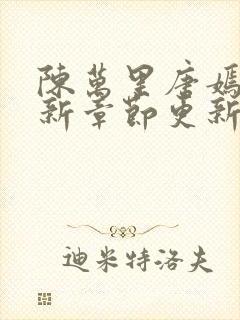 陳萬里唐嫣
新章節更新
迪米特洛夫